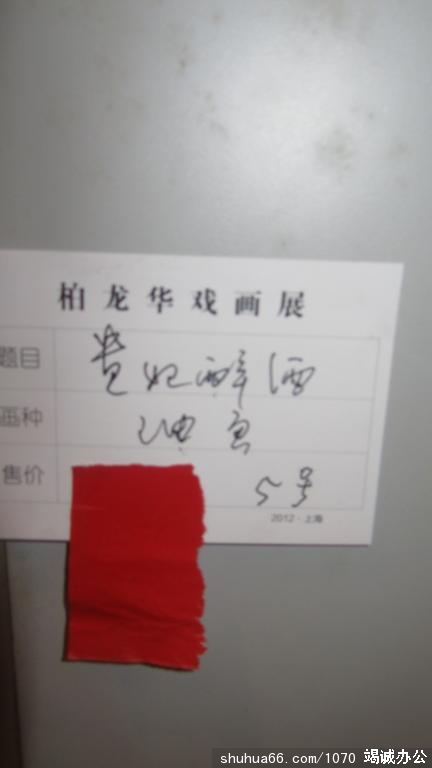 柏龙华戏画展
题目 贵妃醉酒
画种 油画
售价 5号
2012·上海
shuhua66.com/1070 竭诚办公